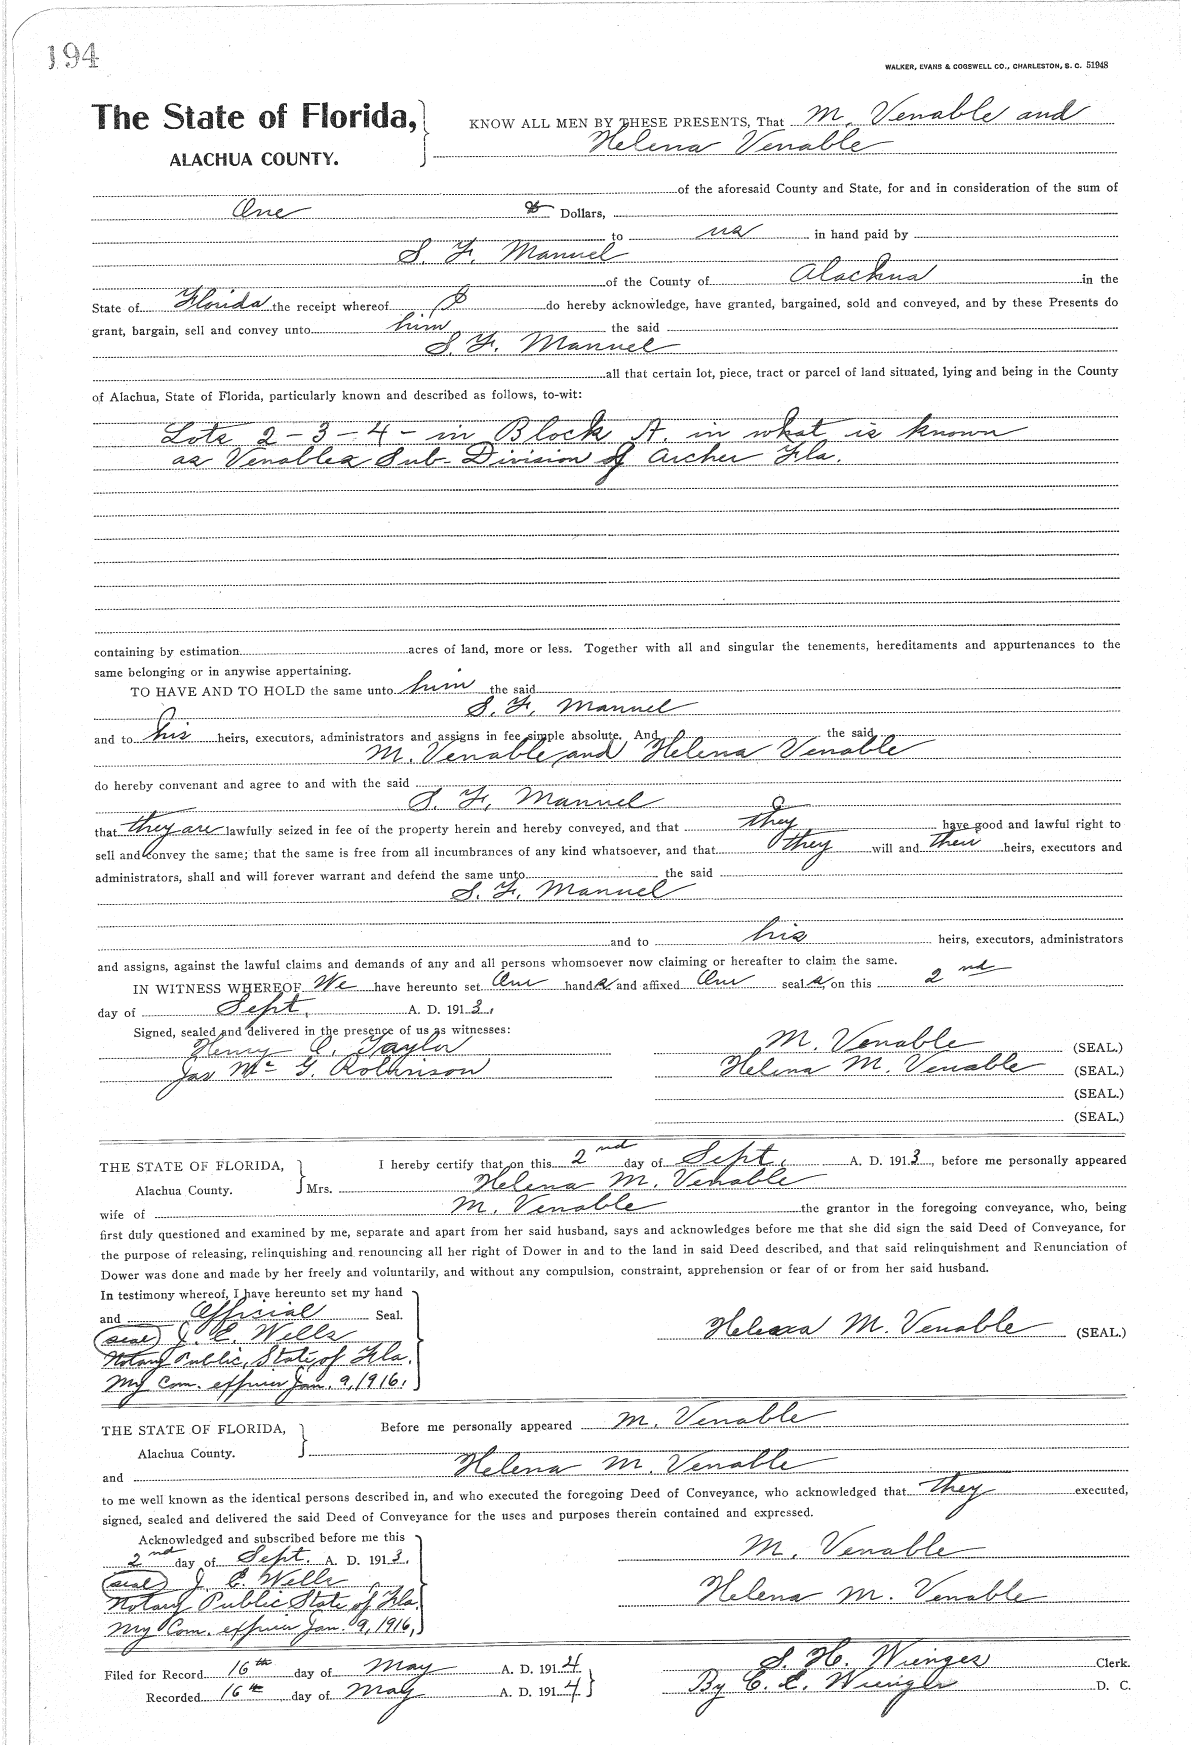 194
WALKER, EVANS & COGSWELL CO., CHARLESTON, S. C. 51948
The State of Florida,
ALACHUA COUNTY.
KNOW ALL MEN BY THESE PRESENTS, That M. Venable and
Helena Venable
of the aforesaid County and State, for and in consideration of the sum of
One Dollars,
to us in hand paid by
S. F. Manuel
of the County of Alachua in the
State of Florida the receipt whereof do hereby acknowledge, have granted, bargained, sold and conveyed, and by these Presents do
grant, bargain, sell and convey unto him the said
S. F. Manuel
all that certain lot, piece, tract or parcel of land situated, lying and being in the County
of Alachua, State of Florida, particularly known and described as follows, to-wit:
Lots 2-3-4- in Block A. in what is known
as Venables Sub-Division of Archer Fla.
containing by estimation acres of land, more or less. Together with all and singular the tenements, hereditaments and appurtenances to the
same belonging or in anywise appertaining.
TO HAVE AND TO HOLD the same unto him the said
S. F. Manuel
and to his heirs, executors, administrators and assigns in fee simple absolute. And the said
M. Venable and Helena Venable
do hereby convenant and agree to and with the said
S. F. Manuel
that they are lawfully seized in fee of the property herein and hereby conveyed, and that they have good and lawful right to
sell and convey the same; that the same is free from all incumbrances of any kind whatsoever, and that they will and their heirs, executors and
administrators, shall and will forever warrant and defend the same unto the said
S. F. Manuel
and to his heirs, executors, administrators
and assigns, against the lawful claims and demands of any and all persons whomsoever now claiming or hereafter to claim the same.
IN WITNESS WHEREOF We have hereunto set Our hand s and affixed Our seal s, on this 2nd
day of Sept, A. D. 1913,
Signed, sealed and delivered in the presence of us as witnesses:
Henry C. Taylor
Jas Mc G. Robinson
M. Venable (SEAL.)
Helena M. Venable (SEAL.)
(SEAL.)
(SEAL.)
THE STATE OF FLORIDA,
Alachua County.
I hereby certify that on this 2nd day of Sept, A. D. 1913, before me personally appeared
Mrs. Helena M. Venable
wife of M. Venable the grantor in the foregoing conveyance, who, being
first duly questioned and examined by me, separate and apart from her said husband, says and acknowledges before me that she did sign the said Deed of Conveyance, for
the purpose of releasing, relinquishing and renouncing all her right of Dower in and to the land in said Deed described, and that said relinquishment and Renunciation of
Dower was done and made by her freely and voluntarily, and without any compulsion, constraint, apprehension or fear of or from her said husband.
In testimony whereof, I have hereunto set my hand
and Official Seal.
(seal) J. C. Wells
Notary Public, State of Fla.
My Com. expires Jan. 9, 1916.
Helena M. Venable (SEAL.)
THE STATE OF FLORIDA,
Alachua County.
Before me personally appeared M. Venable
and Helena M. Venable
to me well known as the identical persons described in, and who executed the foregoing Deed of Conveyance, who acknowledged that they executed,
signed, sealed and delivered the said Deed of Conveyance for the uses and purposes therein contained and expressed.
Acknowledged and subscribed before me this
2nd day of Sept. A. D. 1913.
(seal) J. C. Wells
Notary Public State of Fla.
My Com. expires Jan. 9, 1916,
M. Venable
Helena M. Venable
Filed for Record 16th day of May A. D. 1914
Recorded 16th day of May A. D. 1914
S. H. Wienges Clerk.
By C. E. Wienges D. C.